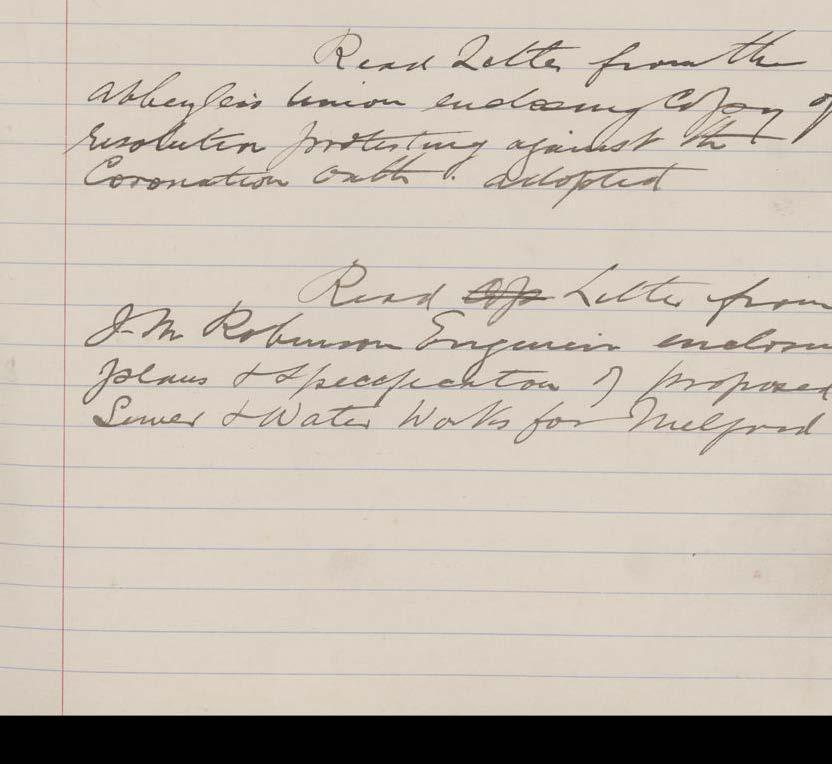 Read Letter from the
Abbeyleix Union enclosing Copy of
resolution protesting against the
Coronation Oath. adopted
Read Letter from
J. M Robinson Engineer
plans & Specification of proposed
Sewer & Water Works for Milford